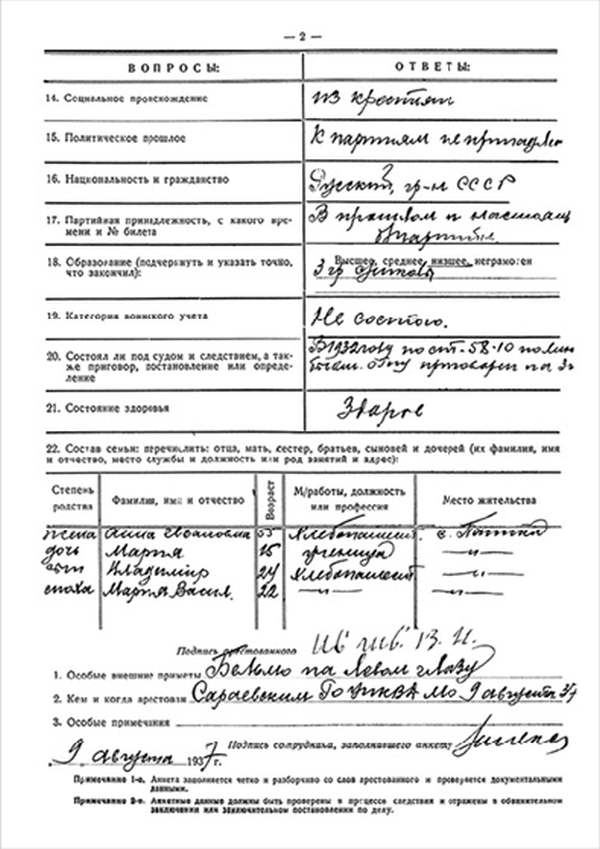 — 2 —
ВОПРОСЫ: ОТВЕТЫ:
14. Социальное происхождение из крестьян
15. Политическое прошлое К партиям не принадле
16. Национальность и гражданство Русский, гр-н СССР
17. Партийная принадлежность, с какого вре- В прошлом и настоящ
мени и № билета
18. Образование (подчеркнуть и указать точно, Высшее, среднее, низшее, неграмотен
что закончил): 3 гр
19. Категория воинского учета Не состою.
20. Состоял ли под судом и следствием, а так- В 1932 году по ст-58-10
же приговор, постановление или опреде- на 3
ление
21. Состояние здоровья
22. Состав семьи: перечислить: отца, мать, сестер, братьев, сыновей и дочерей (их фамилия, имя
и отчество, место службы и должность или род занятий и адрес):
Степень родства Фамилия, имя и отчество Возраст М/работы, должность или профессия Место жительства
жена Анна Ивановна 55 Хлебопашест с.
дочь Мария 15 ученица —"—
Владимир 24 Хлебопашест —"—
сноха Мария Васил. 22 —"— —"—
Подпись арестованного
1. Особые внешние приметы Бельмо на левом глазу
2. Кем и когда арестован Сараевским РО УНКВД МО 9 августа 37
3. Особые примечания
9 августа 1937 г. Подпись сотрудника, заполнявшего анкету
Примечание 1-е. Анкета заполняется четко и разборчиво со слов арестованного и проверяется документальными
данными.
Примечание 2-е. Анкетные данные должны быть проверены в процессе следствия и отражены в обвинительном
заключении или заключительном постановлении по делу.